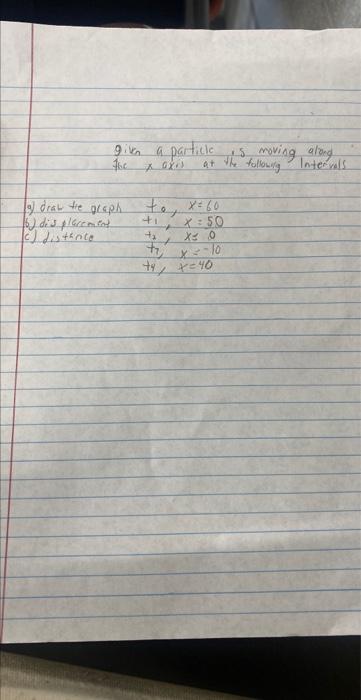 given a particle is moving along
the x axis at the following Intervals
a) draw the graph t0, x=60
b) displacement t1, x=50
c) distance t2, x= 0
t3, x=-10
t4, x=40